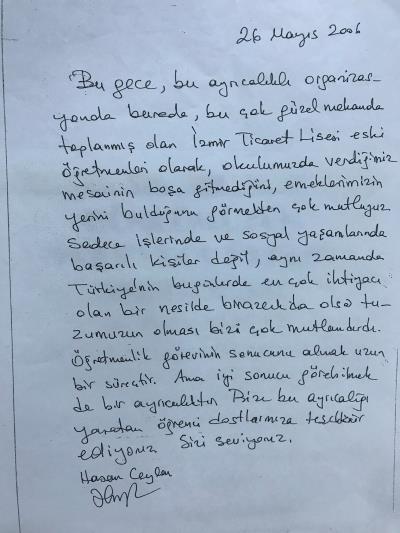 26 Mayıs 2006
Bu gece, bu ayrıcalıklı organizas-
yonda burada, bu çok güzel mekanda
toplanmış olan İzmir Ticaret Lisesi eski
öğretmenleri olarak, okulumuzda verdiğimiz
mesainin boşa gitmediğini, emeklerimizin
yerini bulduğunu görmekten çok mutluyuz
Sadece işlerinde ve sosyal yaşamlarında
başarılı kişiler değil, aynı zamanda
Türkiye'nin bugünlerde en çok ihtiyacı
olan bir nesilde birazcık da olsa tu-
zumuzun olması bizi çok mutlandırdı.
Öğretmenlik görevinin sonucunu almak uzun
bir süreçtir. Ama iyi sonucu görebilmek
de bir ayrıcalıktır. Bize bu ayrıcalığı
yaratan öğrenci dostlarımıza teşekkür
ediyoruz Sizi seviyoruz.
Hasan Ceylan